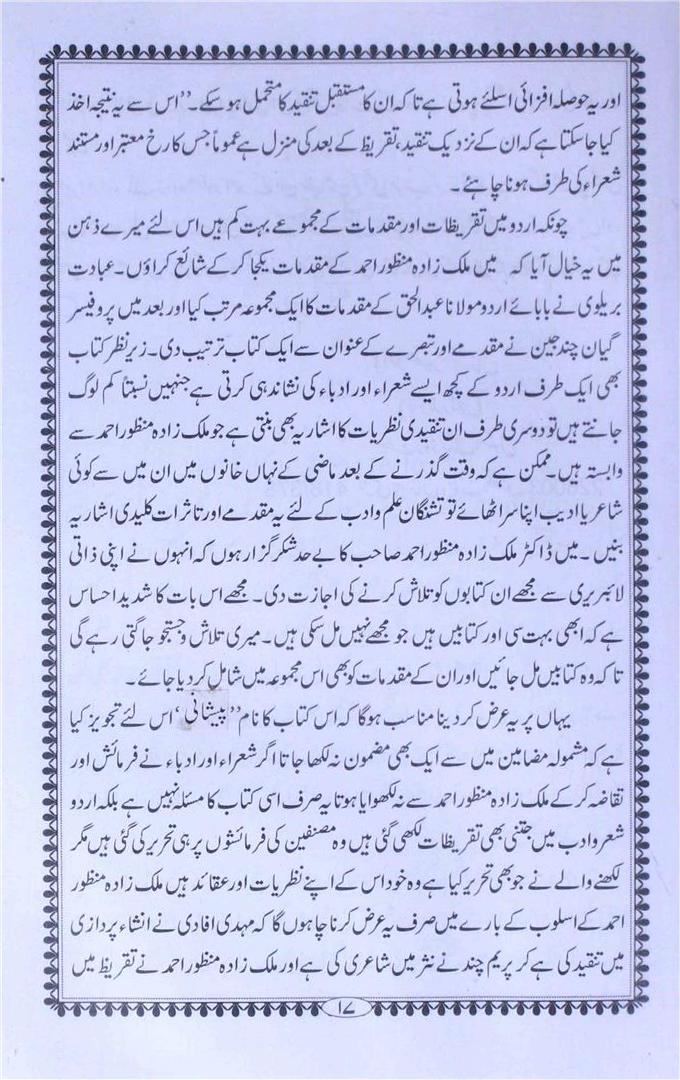 اور یہ حوصلہ افزائی اسلئے ہوتی ہے تا کہ ان کا مستقبل تنقید کا متحمل ہو سکے۔’’ اس سے یہ نتیجہ اخذ
کیا جاسکتا ہے کہ ان کے نزدیک تنقید، تقریظ کے بعد کی منزل ہے عموماً جس کا رخ معتبر اور مستند
شعراء کی طرف ہونا چاہئے۔
چونکہ اردو میں تقریظات اور مقدمات کے مجموعے بہت کم ہیں اس لئے میرے ذہن
میں یہ خیال آیا کہ میں ملک زادہ منظور احمد کے مقدمات یکجا کر کے شائع کراؤں۔ عبادت
بریلوی نے بابائے اردو مولانا عبدالحق کے مقدمات کا ایک مجموعہ مرتب کیا اور بعد میں پروفیسر
گیان چند جین نے مقدمے اور تبصرے کے عنوان سے ایک کتاب ترتیب دی۔ زیر نظر کتاب
بھی ایک طرف اردو کے کچھ ایسے شعراء اور ادباء کی نشاندہی کرتی ہے جنہیں نسبتاً کم لوگ
جانتے ہیں تو دوسری طرف ان تنقیدی نظریات کا اشاریہ بھی بنتی ہے جو ملک زادہ منظور احمد سے
وابستہ ہیں۔ ممکن ہے کہ وقت گذرنے کے بعد ماضی کے نہاں خانوں میں ان میں سے کوئی
شاعر یا ادیب اپنا سر اٹھائے تو تشنگان علم و ادب کے لئے یہ مقدمے اور تاثرات کلیدی اشاریہ
بنیں۔ میں ڈاکٹر ملک زادہ منظور احمد صاحب کا بے حد شکر گزار ہوں کہ انہوں نے اپنی ذاتی
لائبریری سے مجھے ان کتابوں کو تلاش کرنے کی اجازت دی۔ مجھے اس بات کا شدید احساس
ہے کہ ابھی بہت سی اور کتابیں ہیں جو مجھے نہیں مل سکی ہیں۔ میری تلاش و جستجو جاگتی رہے گی
تا کہ وہ کتابیں مل جائیں اور ان کے مقدمات کو بھی اس مجموعہ میں شامل کر دیا جائے۔
یہاں پر یہ عرض کر دینا مناسب ہوگا کہ اس کتاب کا نام ’’پیشانی‘ اس لئے تجویز کیا
ہے کہ مشمولہ مضامین میں سے ایک بھی مضمون نہ لکھا جاتا اگر شعراء اور ادباء نے فرمائش اور
تقاضہ کر کے ملک زادہ منظور احمد سے نہ لکھوایا ہوتا یہ صرف اسی کتاب کا مسئلہ نہیں ہے بلکہ اردو
شعر و ادب میں جتنی بھی تقریظات لکھی گئی ہیں وہ مصنفین کی فرمائشوں پر ہی تحریر کی گئی ہیں مگر
لکھنے والے نے جو بھی تحریر کیا ہے وہ خود اس کے اپنے نظریات اور عقائد ہیں ملک زادہ منظور
احمد کے اسلوب کے بارے میں صرف یہ عرض کرنا چاہوں گا کہ مہدی افادی نے انشاء پردازی
میں تنقید کی ہے کر پریم چند نے نثر میں شاعری کی ہے اور ملک زادہ منظور احمد نے تقریظ میں
۱۷